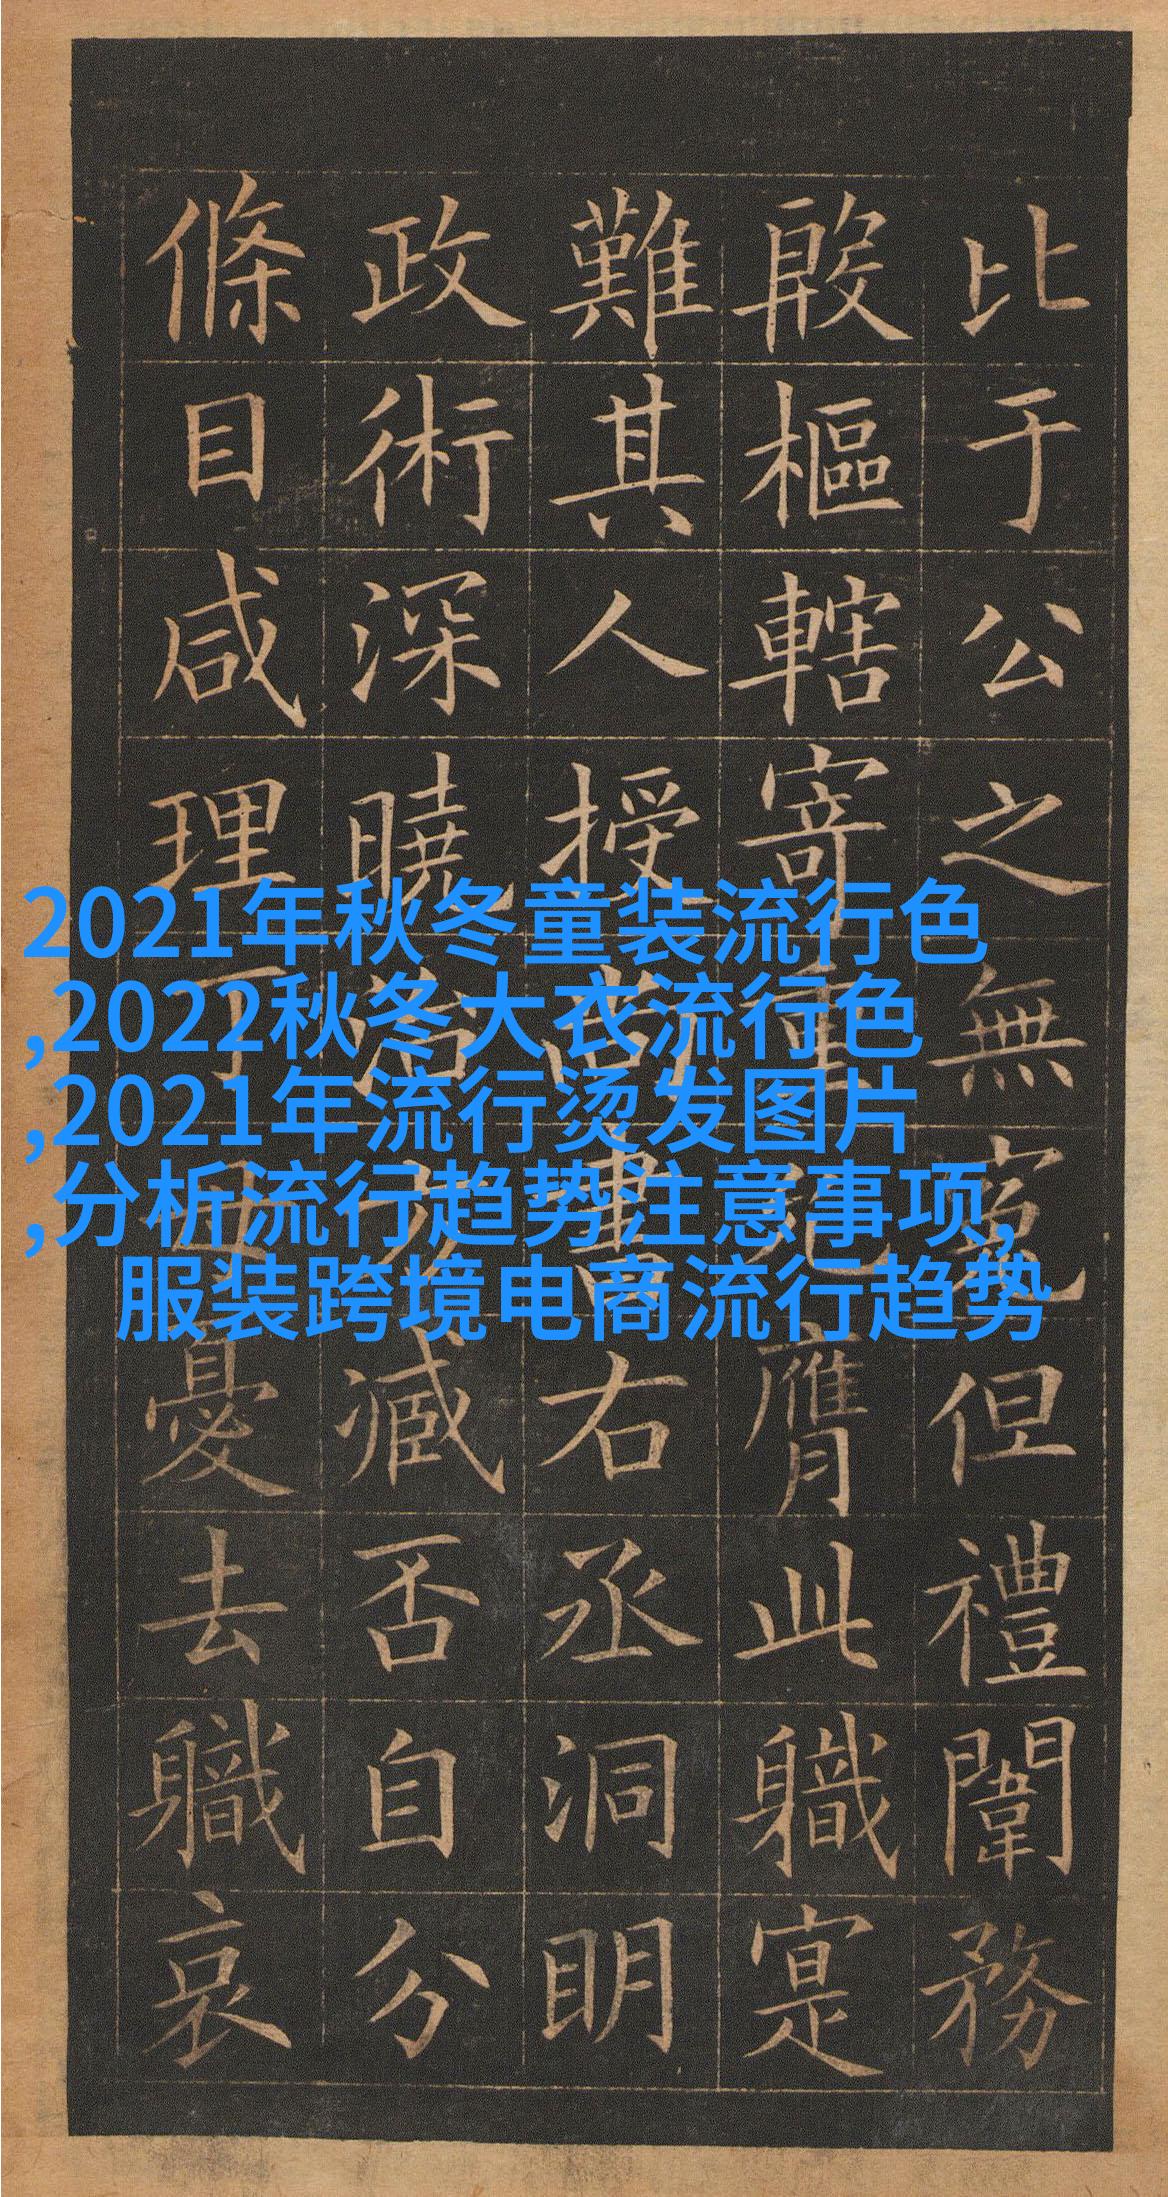 比于公之無寃但禮闈務
殷樞轄寄重膺此職寔
難其人授尚書右丞洞明
政術深曉治方臧否自分
條目咸理丁母憂去職哀
2021年秋冬童装流行色
,2022秋冬大衣流行色
,2021年流行烫发图片
,分析流行趋势注意事项,
服装跨境电商流行趋势